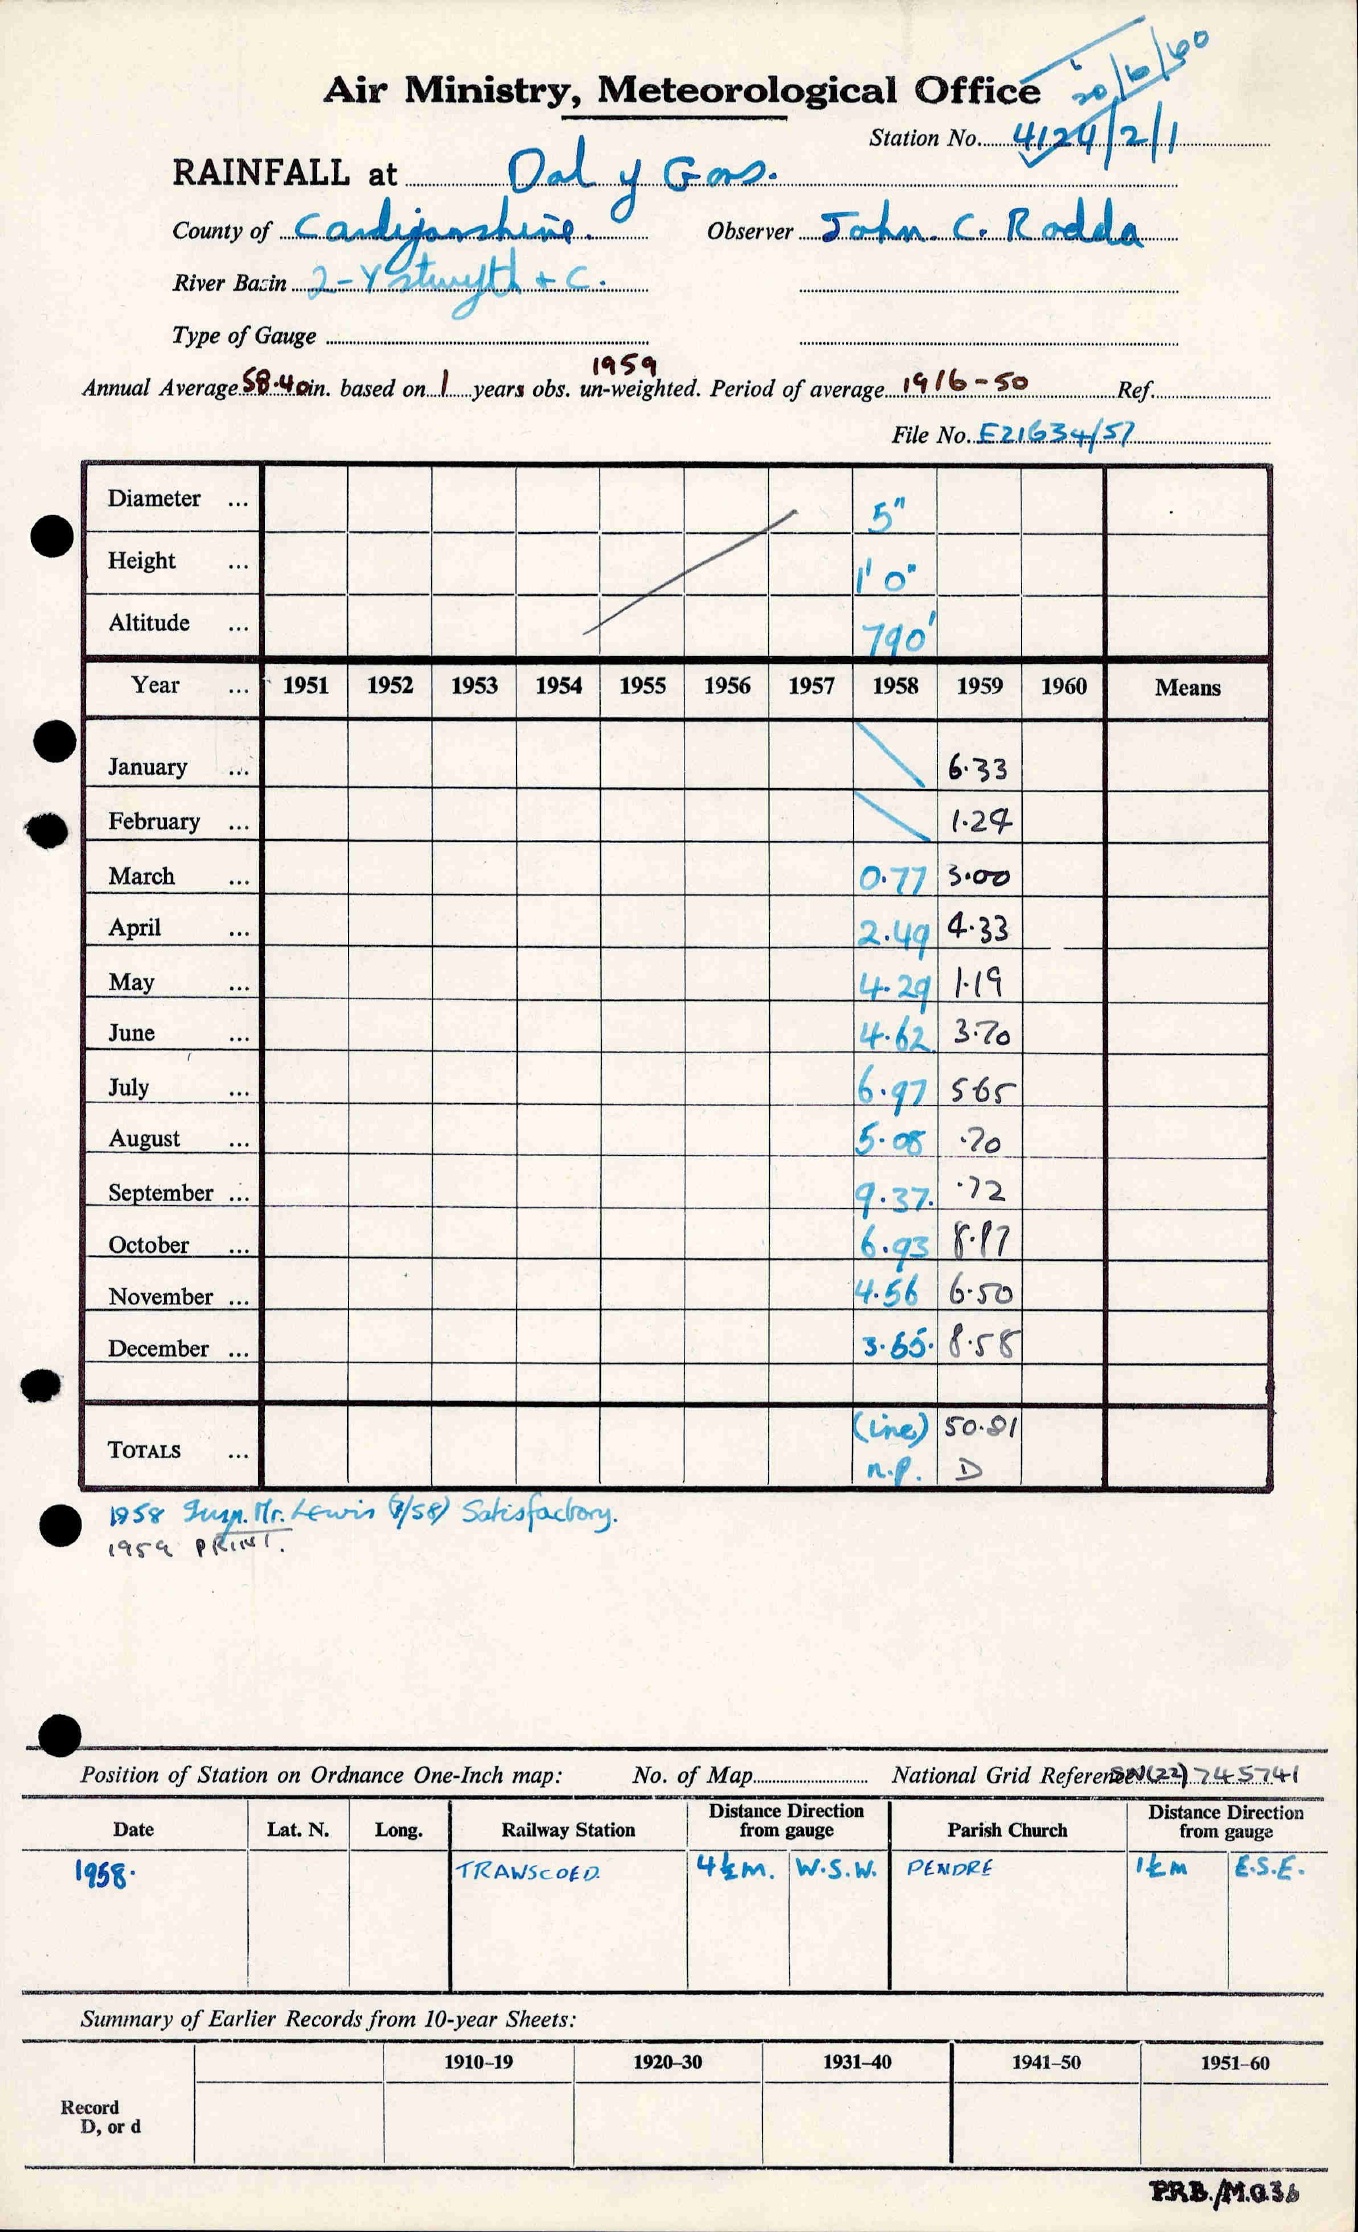 20/6/60
Air Ministry, Meteorological Office
Station No. 4124/2/1
RAINFALL at Dol y Gors.
County of Cardiganshire. Observer John. C. Rodda
River Basin 2-Ystwyth + C.
Type of Gauge
1959
Annual Average 58.40 in. based on 1 years obs. un-weighted. Period of average 1916-50 Ref.
File No. E21634/57
Diameter ... 5"
Height ... 1' 0"
Altitude ... 790'
Year ... 1951 1952 1953 1954 1955 1956 1957 1958 1959 1960 Means
January ... 6.33
February ... 1.24
March ... 0.77 3.00
April ... 2.49 4.33
May ... 4.29 1.19
June ... 4.62 3.70
July ... 6.97 5 65
August ... 5.08 .70
September ... 9.37. .72
October ... 6.93 8.87
November ... 4.56 6.50
December ... 3.65. 8.58
TOTALS ... (inc) 50.81
n.p. D
1958 Insp. Mr. Lewis (7/58) Satisfactory.
1959 PRINT.
Position of Station on Ordnance One-Inch map: No. of Map National Grid Reference SN(22) 745741
Date Lat. N. Long. Railway Station Distance Direction from gauge Parish Church Distance Direction from gauge
1958. TRAWSCOED. 4½m. W.S.W. PENDRE 1½m E.S.E.
Summary of Earlier Records from 10-year Sheets:
1910–19 1920–30 1931–40 1941–50 1951–60
Record
D, or d
P.R.B./M.O.36